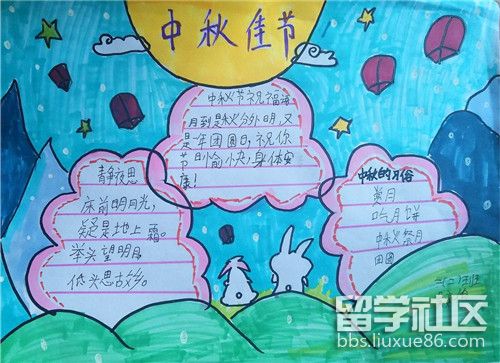 中秋佳节
中秋节祝福语
月到是秋分外明,又
是一年团圆日,祝你
节日愉快,身体安
康!
静夜思
床前明月光,
疑是地上霜。
举头望明月
低头思故乡。
中秋的习俗
赏月
吃月饼
中秋祭月
团圆
留学社区
bbs.liuxue86.com